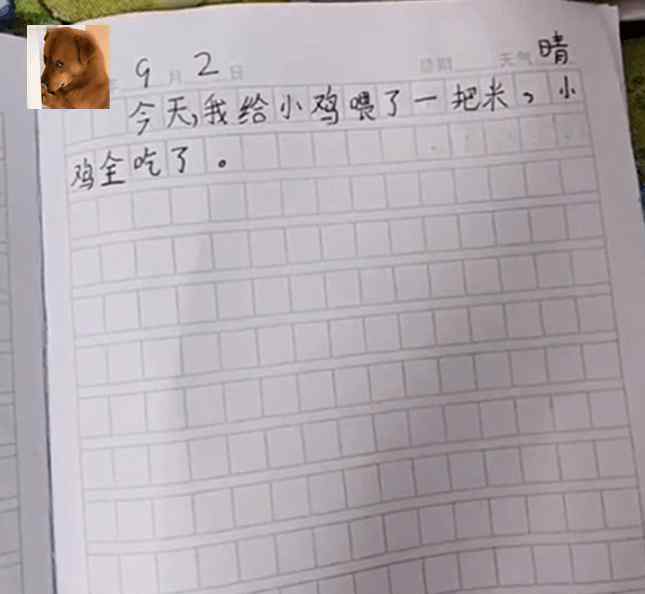 年 9月2日 星期 天气 晴
今天,我给小鸡喂了一把米,小
鸡全吃了。